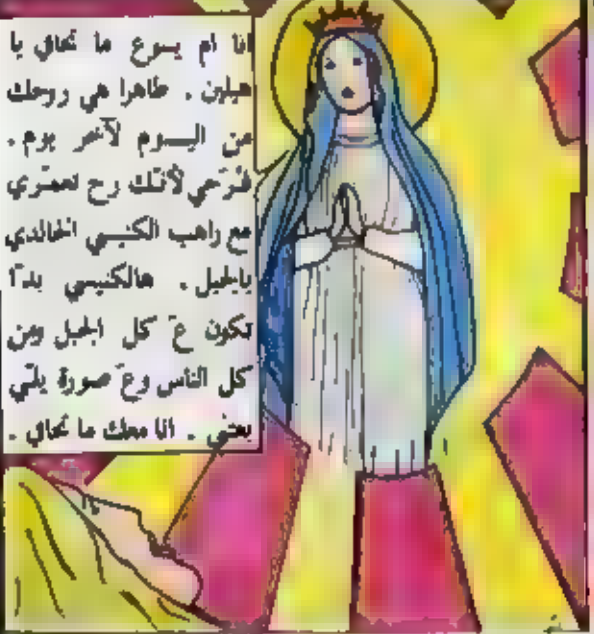 انا ام يسوع ما تخافي يا
هيلين . طاهرا هي روحك
من اليـوم لآخر يوم .
فترحي لأنك رح تعمّري
مع راهب الكنيسي الخالدي
بالجبل . هالكنيسي بدّا
تكون عَ كل الجبل ومن
كل الناس وعَ صورة يلّي
بعتني . انا معك ما تخافي .